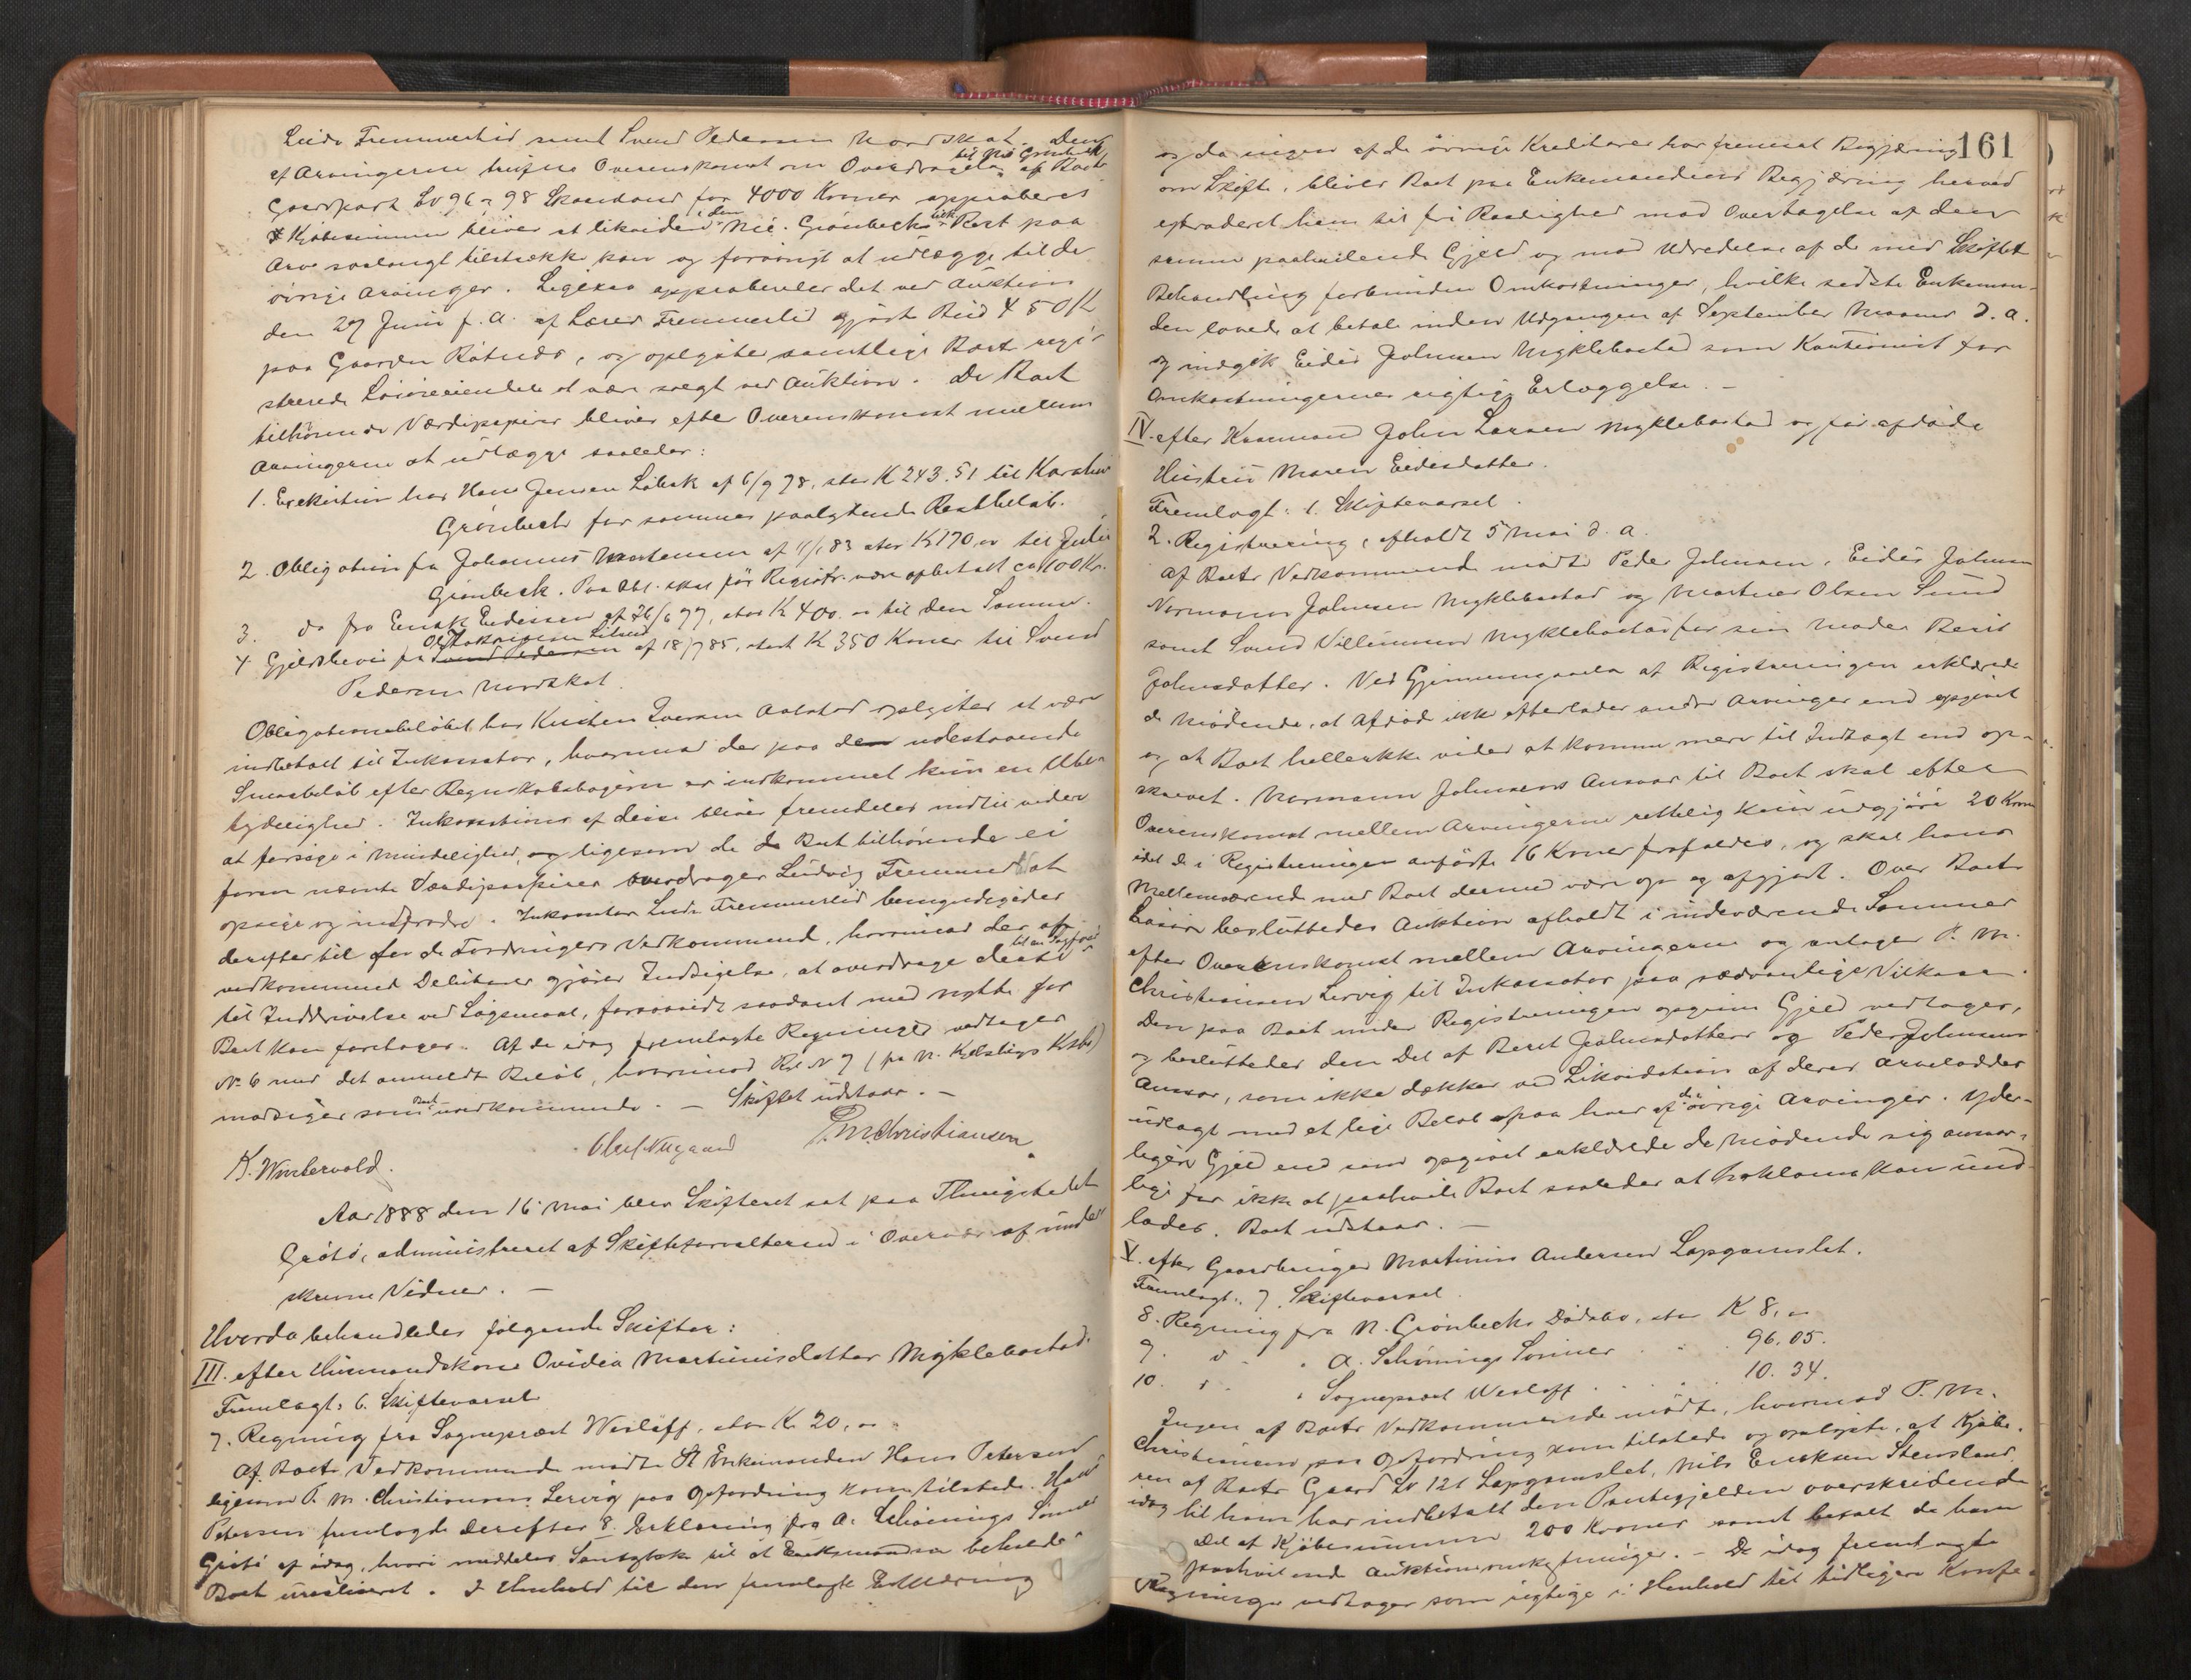 Ludv Fremmerlid samt Svend Pedersen Nordskot. Den
af Arvingerne trufne Overenskomst om Overdragelse til Nic Grønbeck af Boets
Gaardpart Lv 96 a 98 Skaaland for 4000 Kroner approberes
Kjøbesummen bliver at likvidere i den Nic. Grønbecks Boet paa
Arv saalangt tilstrække kan og forøvrigt at udlægge til de
øvrige Arvinger. Ligesaa approberedes det ved Auktion
den 27 Juni f. A. af Lærer Fremmerlid gjort Bud 450 Kr
paa Gaarden Røtnes, og oplystes samtlige Boets regi-
strerede Løsøreiendele at være solgt ved Auktion. De Boet
tilhørende Værdipapirer bliver efter Overenskomst mellem
Arvingerne at udlægge saaledes:
1. Exekution hos Hans Jensen Løbak af 6/9 78, stor K 243.51 til Karoline
Grønbeck for sammes paalydende Restbeløb.
2. Obligation fra Johannes Mortensen af 11/1 83 stor K 170,00 til Julie
Grønbeck. Paa Obl. skal før Registr. være afbetalt ca 100 Kr.
3. do fra Enok Eidissen af 26/6 77, stor Kr 400.00 til den Samme.
4. Gjeldsbevis fra af 18/7 85, stort Kr 350 Kroner til Svend
Pedersen Nordskot.
Obligationsbeløbet hos Kristen Iversen Aalstad oplystes at være
indbetalt til Inkassator, hvorimod der paa de udestaaende
Smaabeløb efter Regnskabsbøgerne er indkommet kun en Ube-
tydelighed. Inkassation af disse bliver fremdeles indtil videre
at forsøge i Mindelighed, og ligesom de da Boet tilhørende ei
foran nævnte Værdipapirer overdrages Ludvig Fremmerlid at
opsige og inddrive. Inkassator Ludv Fremmerlid bemyndigedes
derefter til for de Fordringers Vedkommende, hvorimod der af
vedkommende Debitorer gjøres Indsigelse, at overdrage disse til en Sagfører
til Inddrivelse ved Søgsmaal, forsaavidt saadant med Nytte for
Boet kan foretages. Af de idag fremlagte Regninger vedtages
No 6 med det anmeldte Beløb, hvorimod Rd N 7 (fra N. Kjeldings Ksbo)
modsiges som Boet uvedkommende. – Skiftet udstaar. –
K. Wintervold. Oluf Nygaard P. M. Christiansen
Aar 1888 den 16 Mai blev Skifteret sat paa Thingstedet
Grøtø, administreret af Skifteforvalteren i Overvær af under
skrevne Vidner. –
Hvorda behandledes følgende Skifter:
III. efter Huusmandskone Ovidia Martinusdatter Myklebostad.
Fremlagt: 6. Skiftevarsel
7. Regning fra Sogneprest Wisløff, stor Kr 20,00
Af Boets Vedkommende mødte Enkemanden Hans Petersen
ligesom P. M. Christiansen Lervig paa Opfordring kom tilstede. Hans
Petersen fremlagde derefter 8. Erklæring fra A. Schønings Sønner
Grøtø af idag, hvori meddeles Samtykke til at Enkemanden beholder
Boet uskiftet. I Henhold til den fremlagte Erklæring
161
og da ingen af de øvrige Kreditorer har fremsat Begjæring
om Skifte, blives Boet paa Enkemandens Begjæring herved
extraderet ham til fri Raadighed mod Overtagelse af den
samme paahvilende Gjeld og mod Udredelse af de med Skiftets
Behandling forbundne Omkostninger, hvilke sidste Enkeman-
den lovede at betale inden Udgangen af September Maaned d. A.
og indgik Eidis Johnsen Myklebostad som Kautionist for
Omkostningernes rigtige Erlæggelse. –
IV. efter Kaarmand John Larsen Myklebostad og før afdøde
Hustru Maren Eidisdatter.
Fremlagt: 1. Skiftevarsel.
2. Registrering, afholdt 5 Mai d. A.
Af Boets Vedkommende mødte Peder Johnsen, Eidis Johnsen
Normann Johnsen Myklebostad og Martnus Olsen Sund
samt Svend Villumsen Myklebostad for sin Moder Berit
Johnsdatter. Ved Gjennemgaaelse af Registreringen erklærede
de Mødende, at Afdøde ikke efterlader andre Arvinger end opgivet
og at Boet hellerikke vides at komme mere til Indtægt end op-
skrevet. Normann Johnsens Ansvar til Boet skal efter
Overenskomst mellem Arvingerne rettelig kun udgjøre 20 Kroner
idet de i Registreringen anførte 16 Kroner frafaldes, og skal hans
Mellemværende med Boet dermed være op og afgjort. Over Boets
Løsøre besluttedes Auktion afholdt i indeværende Sommer
efter Overenskomst mellem Arvingerne og antages P. M.
Christiansen Lervig til Inkassator paa sædvanlige Vilkaar.
Den paa Boet under Registreringen opgivne Gjeld vedtages,
og besluttedes den Del af Beret Johnsdatters og Peder Johnsens
Ansvar, som ikke dækkes ved Likvidation af deres Arvelodder
udlagt med et lige Beløb paa hver af de øvrige Arvinger. Yder-
ligere Gjeld end som opgivet erklærede de Mødende sig ansvar-
lige for ikke at paahvile Boet saaledes at Proklama kan und-
lades. Boet udstaar. –
V. efter Gaardbruger Martinus Andersen Lapgamslet.
Fremlagt: 7. Skiftevarsel.
8. Regning fra N. Grønbecks Dødsbo, stor K 8,00
9. do . A. Schønings Sønner . . . 96.05.
10. do . Sogneprest Wisløff . . . 10.34.
Ingen af Boets Vedkommende mødte, hvorimod P. M.
Christiansen paa Opfordring kom tilstede og oplyste, at Kjøbe-
ren af Boets Gaard Lv 121 Lapgamslet, Nils Eriksen Stensland
idag til ham har indbetalt den Pantegjelden overskridende
Del af Kjøbesummen 200 Kroner samt betalt de ham
paahvilende Auktionsomkostninger. – De idag fremlagte
Regninger vedtages som rigtige i Henhold til tidligere Konfe-